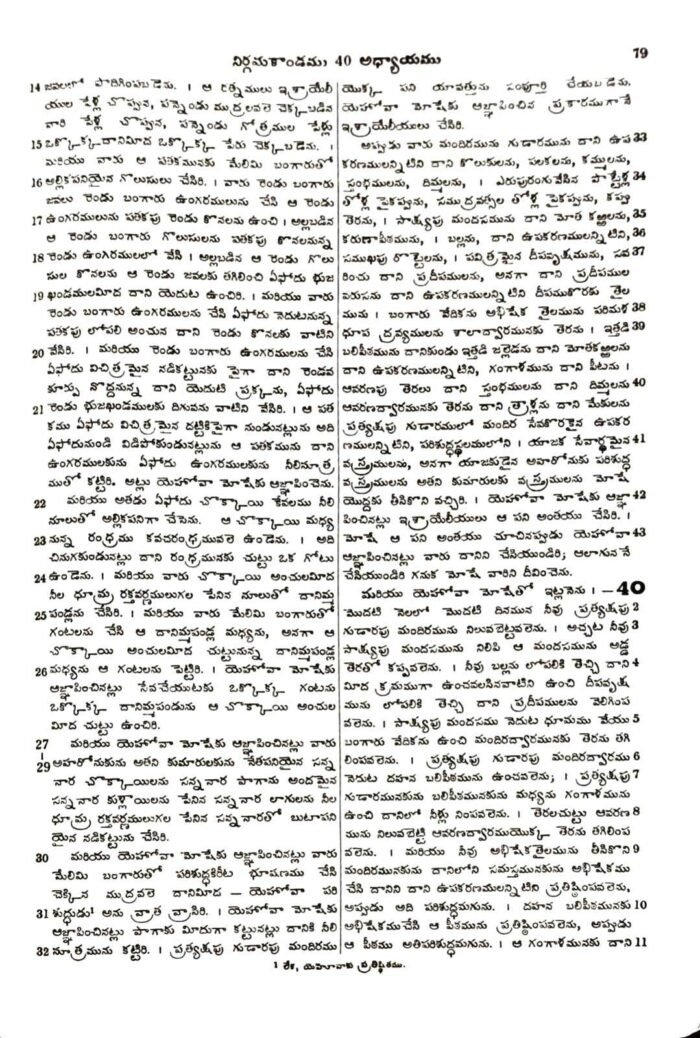 నిర్గమకాండము 40 అధ్యాయము
79
14 జవలలో పొదిగింపబడెను. । ఆ రత్నములు ఇశ్రాయేలీ
యుల పేళ్ల చొప్పున, పన్నెండు ముద్రలవలె చెక్కబడిన
వారి పేళ్ల చొప్పున, పన్నెండు గోత్రముల పేళ్లు
15 ఒక్కొక్కదానిమీద ఒక్కొక్క పేరు చెక్కబడెను. ।
మరియు వారు ఆ పతకమునకు మేలిమి బంగారుతో
16 అల్లికపనియైన గొలుసులు చేసిరి. । వారు రెండు బంగారు
జవలు రెండు బంగారు ఉంగరములును చేసి ఆ రెండు
17 ఉంగరములును పతకపు రెండు కొనలను ఉంచి । అల్లబడిన
ఆ రెండు బంగారు గొలుసులను పతకపు కొనలనున్న
18 రెండు ఉంగరములలో వేసి । అల్లబడిన ఆ రెండు గొలు
సుల కొనలను ఆ రెండు జవలకు తగిలించి ఏఫోదు భుజ
19 ఖండములమీద దాని యెదుట ఉంచిరి. । మరియు వారు
రెండు బంగారు ఉంగరములను చేసి ఏఫోదు నెదుటనున్న
పతకపు లోపలి అంచున దాని రెండు కొనలకు వాటిని
20 వేసిరి. । మరియు రెండు బంగారు ఉంగరములను చేసి
ఏఫోదు విచిత్రమైన నడికట్టునకు పైగా దాని రెండవ
కూర్పు నొద్దనున్న దాని యెదుటి ప్రక్కను, ఏఫోదు
21 రెండు భుజఖండములకు దిగువను వాటిని వేసిరి. । ఆ పత
కము ఏఫోదు విచిత్రమైన దట్టికిపైగా నుండునట్లును అది
ఏఫోదునుండి విడిపోకుండునట్లును ఆ పతకమును దాని
ఉంగరములకును ఏఫోదు ఉంగరములకును నీలిసూత్ర
ముతో కట్టిరి. అట్లు యెహోవా మోషేకు ఆజ్ఞాపించెను.
22 మరియు అతడు ఏఫోదు చొక్కాయి కేవలము నీలి
నూలుతో అల్లికపనిగా చేసెను. ఆ చొక్కాయి మధ్య
23 నున్న రంధ్రము కవచరంధ్రమువలె ఉండెను. । అది
చినుగకుండునట్లు దాని రంధ్రమునకు చుట్టు ఒక గోటు
24 ఉండెను. । మరియు వారు చొక్కాయి అంచులమీద
నీల ధూమ్ర రక్తవర్ణములుగల పేనిన నూలుతో దానిమ్మ
25 పండ్లను చేసిరి. । మరియు వారు మేలిమి బంగారుతో
గంటలను చేసి ఆ దానిమ్మపండ్ల మధ్యను, అనగా ఆ
చొక్కాయి అంచులమీద చుట్టునున్న దానిమ్మపండ్ల
26 మధ్యను ఆ గంటలను పెట్టిరి. । యెహోవా మోషేకు
ఆజ్ఞాపించినట్లు సేవచేయుటకు ఒక్కొక్క గంటను
ఒక్కొక్క దానిమ్మపండును ఆ చొక్కాయి అంచుల
మీద చుట్టు ఉంచిరి.
27 మరియు యెహోవా మోషేకు ఆజ్ఞాపించినట్లు వారు
29 అహరోనుకును అతని కుమారులకును నేతపనియైన సన్న
నార చొక్కాయిలను సన్ననార పాగాను అందమైన
సన్ననార కుళ్లాయిలను పేనిన సన్ననార లాగులను నీల
ధూమ్ర రక్తవర్ణములుగల పేనిన సన్ననారతో బుటాపని
యైన నడికట్టును చేసిరి.
30 మరియు యెహోవా మోషేకు ఆజ్ఞాపించినట్లు వారు
మేలిమి బంగారుతో పరిశుద్ధకిరీట భూషణము చేసి
చెక్కిన ముద్రవలె దానిమీద — యెహోవా పరి
31 శుద్ధుడు¹ అను వ్రాత వ్రాసిరి. । యెహోవా మోషేకు
ఆజ్ఞాపించినట్లు పాగాకు మీదుగా కట్టునట్లు దానికి నీలి
32 సూత్రమును కట్టిరి. । ప్రత్యక్షపు గుడారపు మందిరము
యొక్క పని యావత్తును సంపూర్తి చేయబడెను.
యెహోవా మోషేకు ఆజ్ఞాపించిన ప్రకారముగానే
ఇశ్రాయేలీయులు చేసిరి.
అప్పుడు వారు మందిరమును గుడారమును దాని ఉప 33
కరణములన్నిటిని దాని కొలుకులను, పలకలను, కమ్ములను,
స్తంభములను, దిమ్మలను, । ఎరుపురంగువేసిన పొట్టేళ్ల 34
తోళ్ల పైకప్పును, సముద్రవత్సల తోళ్ల పైకప్పును, కప్పు
తెరను, । సాక్ష్యపు మందసమును దాని మోత కఱ్ఱలను, 35
కరుణాపీఠమును, । బల్లను, దాని ఉపకరణములన్నిటిని, 36
సముఖపు రొట్టెలను, । పవిత్రమైన దీపవృక్షమును, సవ 37
రించు దాని ప్రదీపములను, అనగా దాని ప్రదీపముల
వరుసను దాని ఉపకరణములన్నిటిని దీపముకొరకు తైల
మును । బంగారు వేదికను అభిషేక తైలమును పరిమళ 38
ధూప ద్రవ్యములను శాలాద్వారమునకు తెరను । ఇత్తడి 39
బలిపీఠమును దానికుండు ఇత్తడి జల్లెడను దాని మోతకఱ్ఱలను
దాని ఉపకరణములన్నిటిని, గంగాళమును దాని పీటను ।
ఆవరణపు తెరలు దాని స్తంభములను దాని దిమ్మలను 40
ఆవరణద్వారమునకు తెరను దాని త్రాళ్లను దాని మేకులను
ప్రత్యక్షపు గుడారములో మందిర సేవకొరకైన ఉపకర
ణములన్నిటిని, పరిశుద్ధస్థలములోని । యాజక సేవార్థమైన 41
వస్త్రములను, అనగా యాజకుడైన అహరోనుకు పరిశుద్ధ
వస్త్రములను అతని కుమారులకు వస్త్రములను మోషే
యొద్దకు తీసికొని వచ్చిరి. । యెహోవా మోషేకు ఆజ్ఞా 42
పించినట్లు ఇశ్రాయేలీయులు ఆ పని అంతయు చేసిరి. ।
మోషే ఆ పని అంతయు చూచినప్పుడు యెహోవా 43
ఆజ్ఞాపించినట్లు వారు దానిని చేసియుండిరి; ఆలాగుననే
చేసియుండిరి గనుక మోషే వారిని దీవించెను.
మరియు యెహోవా మోషేతో ఇట్లనెను । — 40
మొదటి నెలలో మొదటి దినమున నీవు ప్రత్యక్షపు 2
గుడారపు మందిరమును నిలువబెట్టవలెను. । అచ్చట నీవు 3
సాక్ష్యపు మందసమును నిలిపి ఆ మందసమును అడ్డ
తెరతో కప్పవలెను. । నీవు బల్లను లోపలికి తెచ్చి దాని 4
మీద క్రమముగా ఉంచవలసినవాటిని ఉంచి దీపవృక్ష
మును లోపలికి తెచ్చి దాని ప్రదీపములను వెలిగింప
వలెను. । సాక్ష్యపు మందసము నెదుట ధూమము వేయు 5
బంగారు వేదికను ఉంచి మందిరద్వారమునకు తెరను తగి
లింపవలెను. । ప్రత్యక్షపు గుడారపు మందిరద్వారము 6
నెదుట దహన బలిపీఠమును ఉంచవలెను; । ప్రత్యక్షపు 7
గుడారమునకును బలిపీఠమునకును మధ్యను గంగాళమును
ఉంచి దానిలో నీళ్లు నింపవలెను. । తెరలచుట్టు ఆవరణ 8
మును నిలువబెట్టి ఆవరణద్వారముయొక్క తెరను తగిలింప
వలెను. । మరియు నీవు అభిషేకతైలమును తీసికొని 9
మందిరమునకును దానిలోని సమస్తమునకును అభిషేకము
చేసి దానిని దాని ఉపకరణములన్నిటిని ప్రతిష్ఠింపవలెను,
అప్పుడు అది పరిశుద్ధమగును. । దహన బలిపీఠమునకు 10
అభిషేకముచేసి ఆ పీఠమును ప్రతిష్ఠింపవలెను, అప్పుడు
ఆ పీఠము అతిపరిశుద్ధమగును. । ఆ గంగాళమునకు దాని 11
1 లేక, యెహోవాకు ప్రతిష్ఠితము.